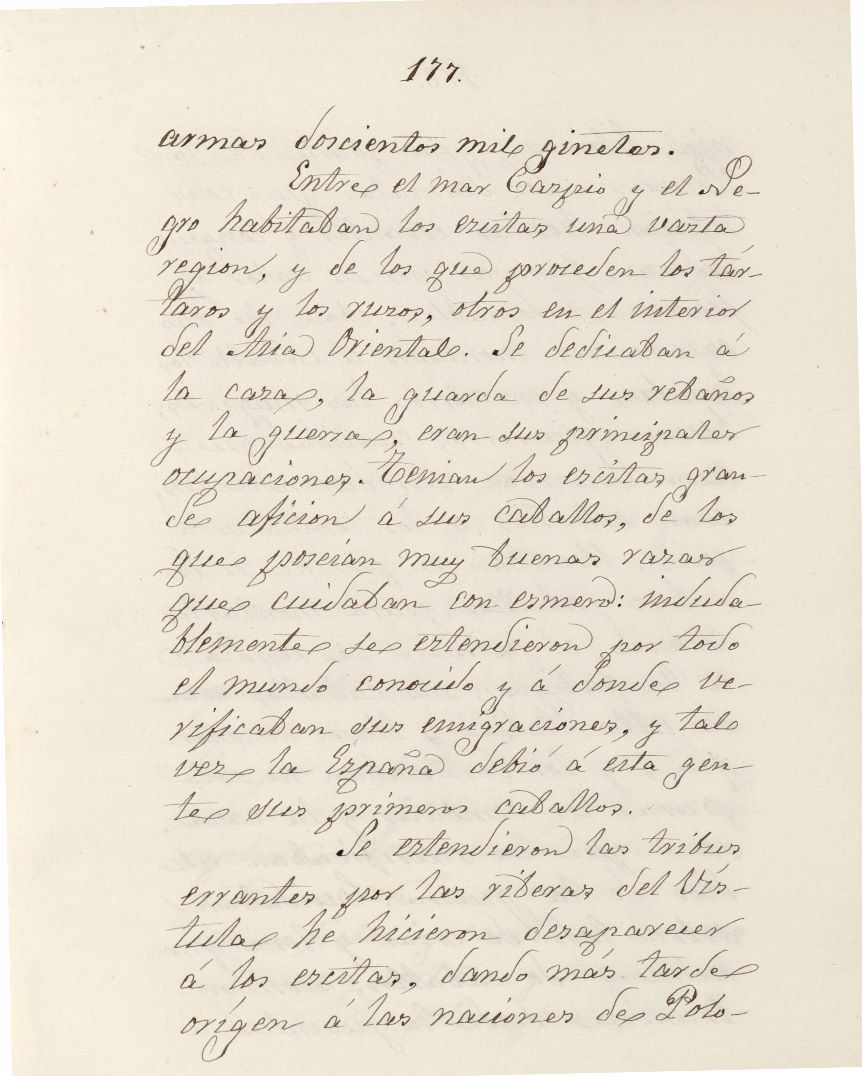 177.
armas doscientos mil ginetes.
Entre el mar Caspio y el Ne-
gro habitaban los escitas una vasta
region, y de los que proceden los tár-
taros y los rusos, otros en el interior
del Asia Oriental. Se dedicaban á
la caza, la guarda de sus rebaños
y la guerra, eran sus principales
ocupaciones. Tenian los escitas gran-
de aficion á sus caballos, de los
que poseian muy buenas razas
que cuidaban con esmero: induda-
blemente se estendieron por todo
el mundo conocido y á donde ve-
rificaban sus emigraciones, y tal
vez la España debió á esta gen-
te sus primeros caballos.
Se estendieron las tribus
errantes por las riberas del Vís-
tula he hicieron desaparecer
á los escitas, dando más tarde
orígen á las naciones de Polo-